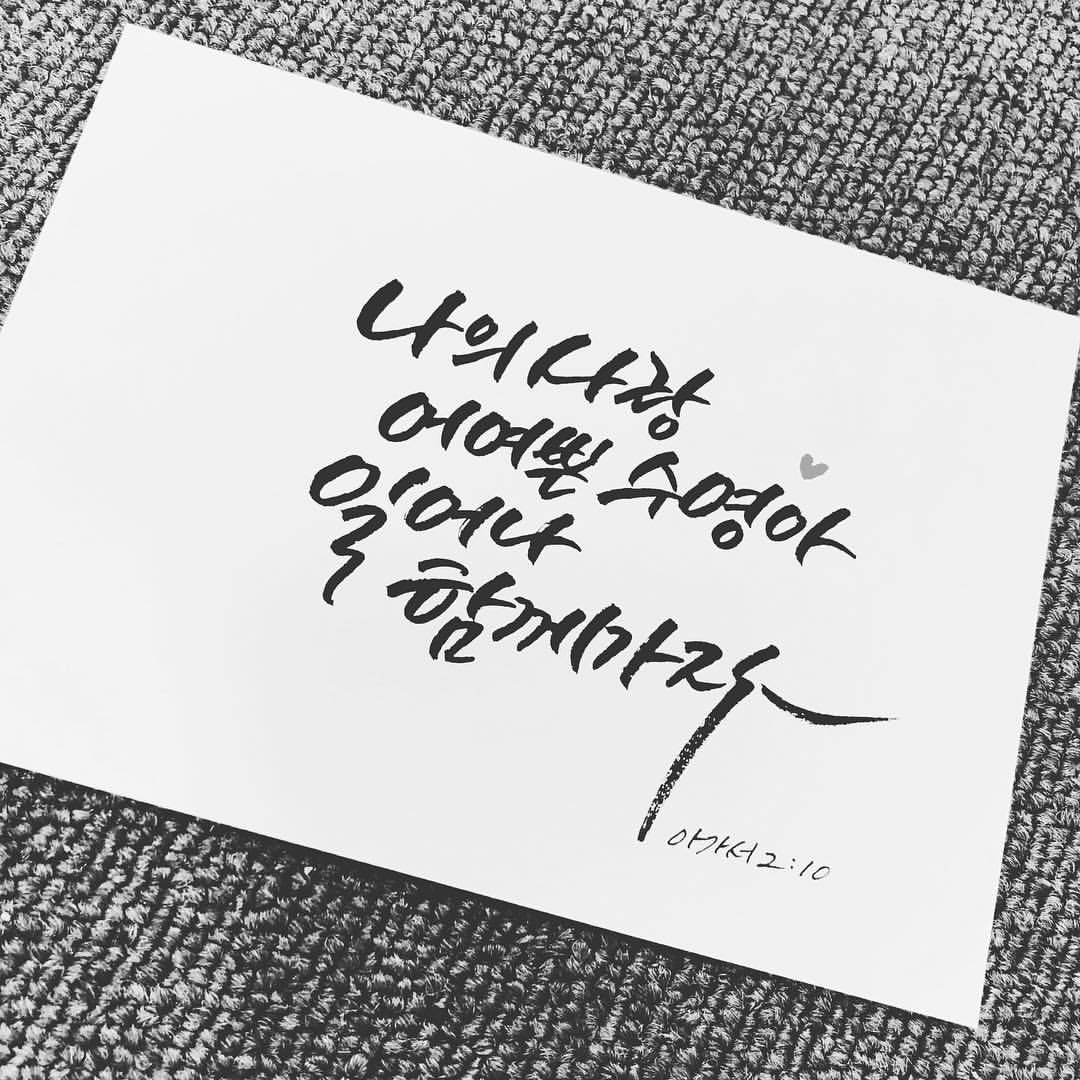 나의 사랑
어여쁜 수영아
일어나
함께가자
아가서 2:10